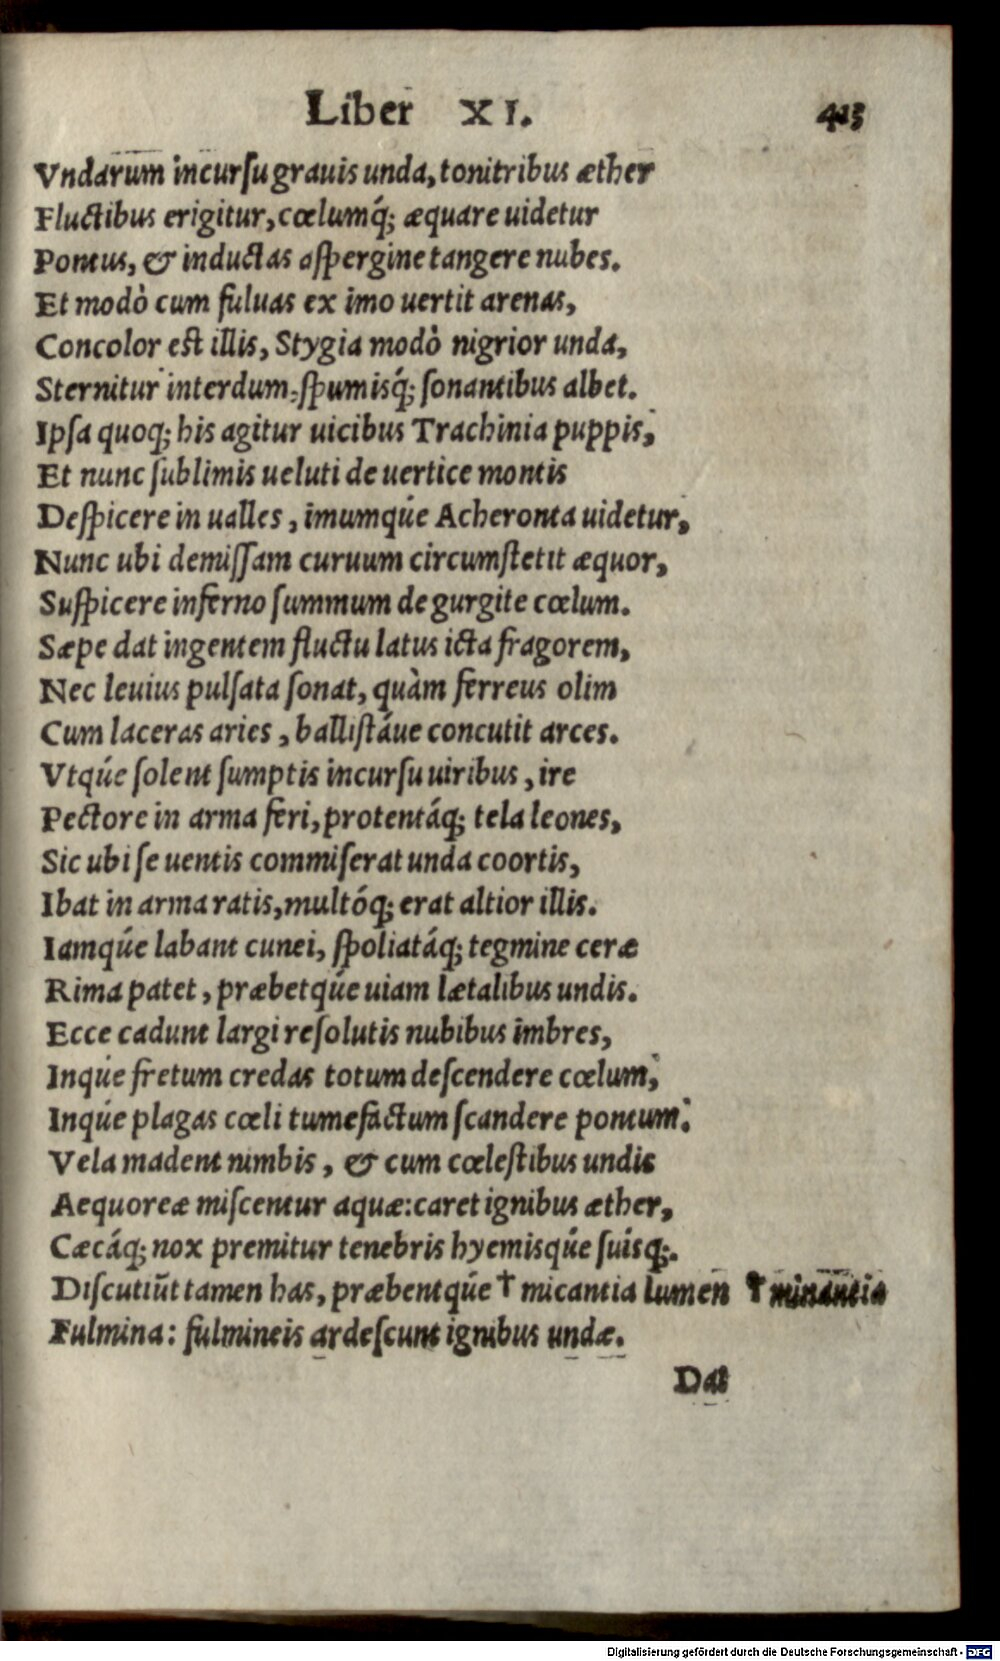 Liber XI. 415
Vndarum incursu grauis unda, tonitribus æther
Fluctibus erigitur, cœlumq́; æquare uidetur
Pontus, & inductas aspergine tangere nubes.
Et modò cum fuluas ex imo uertit arenas,
Concolor est illis, Stygia modò nigrior unda,
Sternitur interdum, spumisq́; sonantibus albet.
Ipsa quoq; his agitur uicibus Trachinia puppis,
Et nunc sublimis ueluti de uertice montis
Despicere in ualles, imumqúe Acheronta uidetur,
Nunc ubi demissam curuum circumstetit æquor,
Suspicere inferno summum de gurgite cœlum.
Sæpe dat ingentem fluctu latus icta fragorem,
Nec leuius pulsata sonat, quàm ferreus olim
Cum laceras aries, ballistáue concutit arces.
Vtqúe solent sumptis incursu uiribus, ire
Pectore in arma feri, protentáq; tela leones,
Sic ubi se uentis commiserat unda coortis,
Ibat in arma ratis, multóq; erat altior illis.
Iamqúe labant cunei, spoliatáq; tegmine ceræ
Rima patet, præbetqúe uiam lætalibus undis.
Ecce cadunt largi resolutis nubibus imbres,
Inqúe fretum credas totum descendere cœlum,
Inqúe plagas cœli tumefactum scandere pontum.
Vela madent nimbis, & cum cœlestibus undis
Aequoreæ miscentur aquæ: caret ignibus æther,
Cæcáq; nox premitur tenebris hyemisqúe suisq́;.
Discutiūt tamen has, præbentqúe † micantia lumen † minantia
Fulmina: fulmineis ardescunt ignibus undæ.
Dat
Digitalisierung gefördert durch die Deutsche Forschungsgemeinschaft - DFG